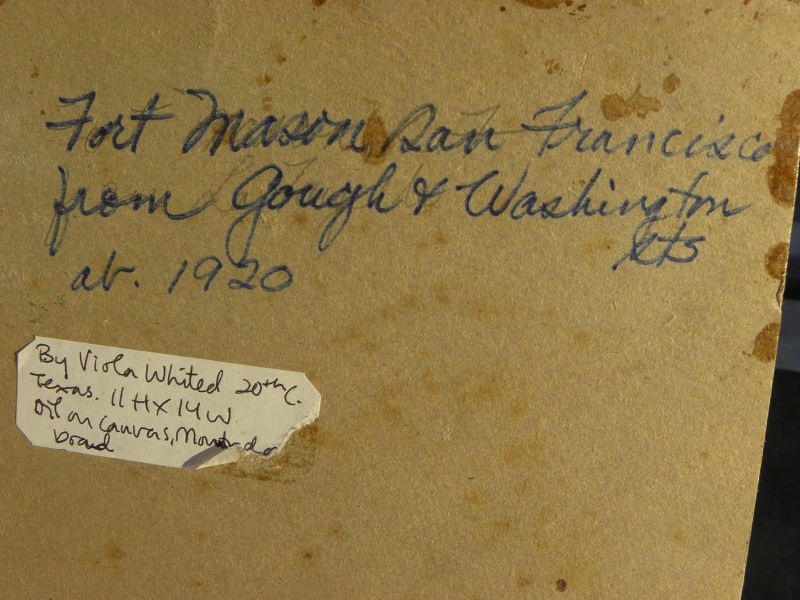 Fort Mason, San Francisco
from Gough & Washington
sts
ab. 1920
By Viola Whited 20th C.
Texas. 11 H X 14 W.
Oil on canvas, Mounted on
board